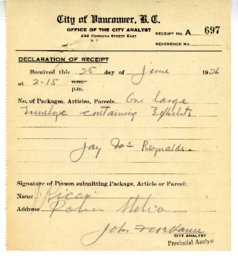 City of Vancouver, B.C.
OFFICE OF THE CITY ANALYST
236 CORDOVA STREET EAST
RECEIPT No. A 697
REFERENCE No.
DECLARATION OF RECEIPT
Received this 25 day of June 1936
at 2-15 p.m.
No. of Packages, Articles, Parcels. One large
Envelope containing Exhibits
Jay Reynolds.
Signature of Person submitting Package, Article or Parcel:
Name Ricci
Address Police Station
CITY ANALYST
Provincial Analyst